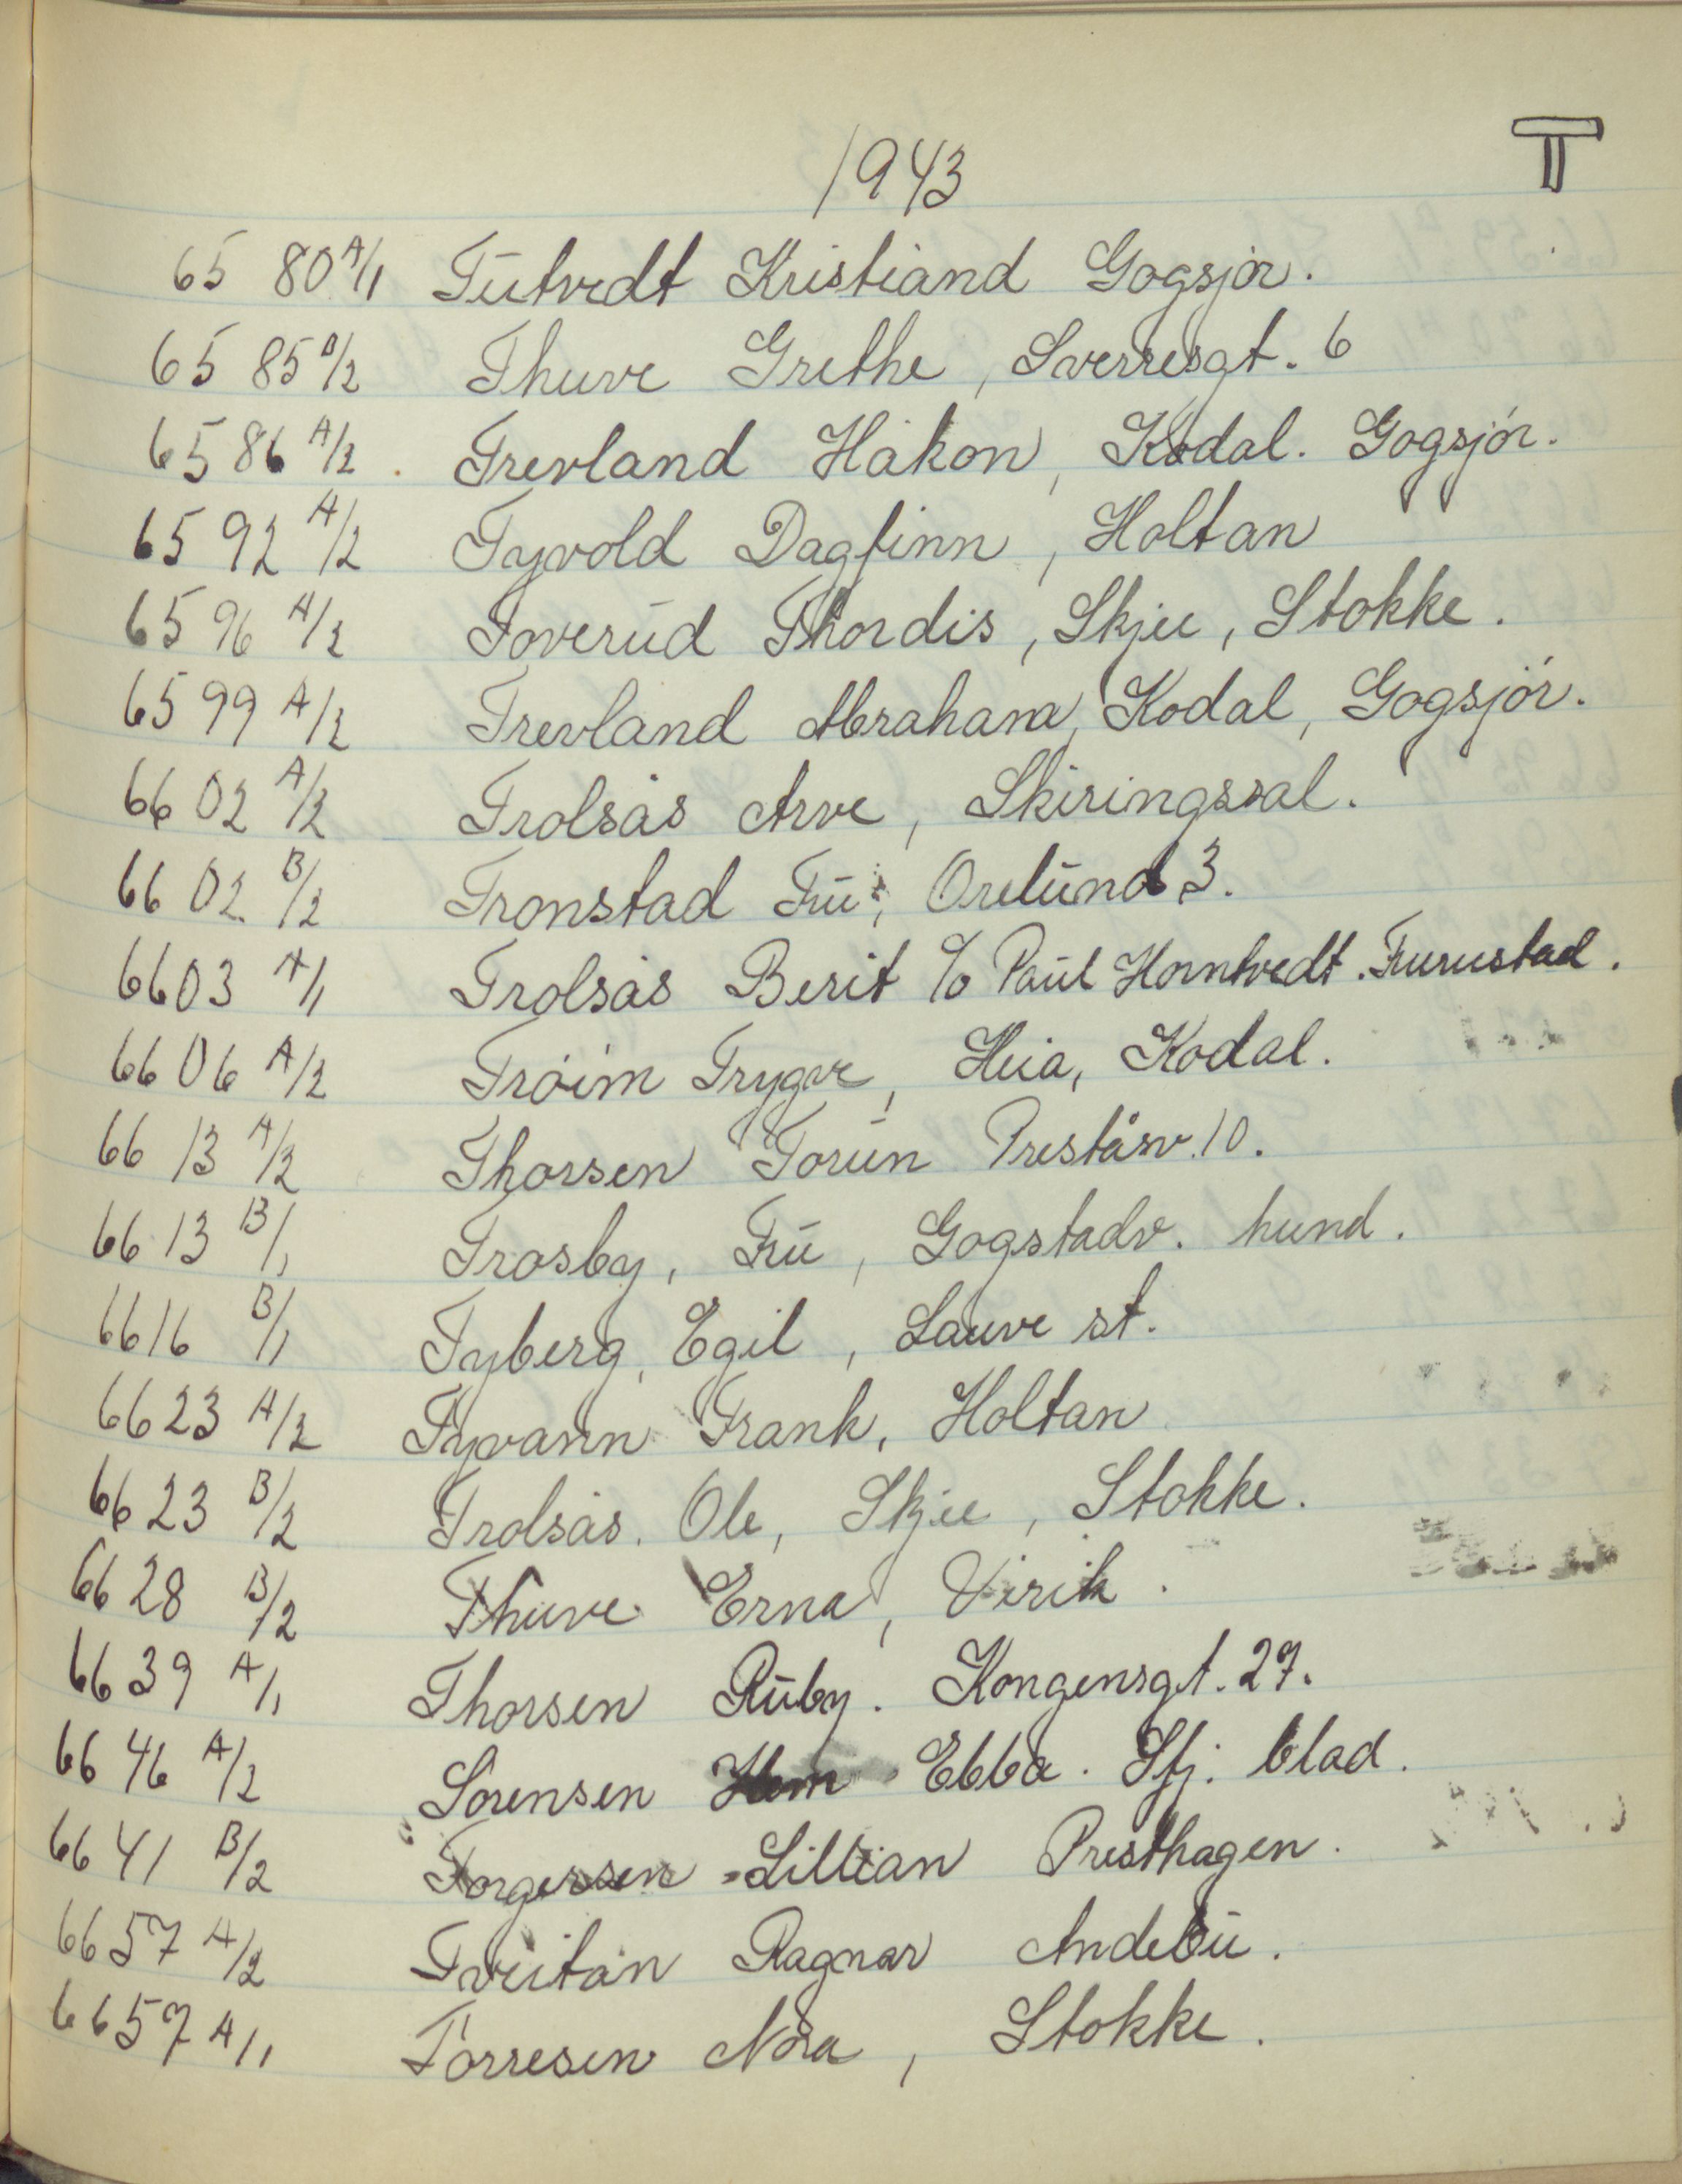 1943
T
65 80 A/1 Tutvedt Kristiand Gogsjør.
65 85 B/2 Thuve Grethe, Sverresgt. 6
65 86 A/2. Trevland Håkon, Kodal. Gogsjór.
65 92 A/2 Tyvold Dagfinn, Holtan
65 96 A/2 Toverud Thordis, Skjee, Stokke.
65 99 A/2 Trevland Abraham, Kodal, Gogsjór.
66 02 A/2 Trolsås Arve, Skiringssal.
66 02 B/2 Tronstad Fru, Orelund 3.
6603 A/1 Trolsås Berit c/o Paul Horntvedt. Furustad.
66 06 A/2 Tróim Trygve, Heia, Kodal.
66 13 A/2 Thorsen Torun Preståsv. 10.
66 13 B/1 Trosby, Fru, Gogstadv. hund.
6616 B/1 Tyberg, Egil, Lauve st.
6623 A/2 Tyvann Frank, Holtan
6623 B/2 Trolsås. Ole, Skjee, Stokke.
6628 B/2 Thuve Erna, Virik.
66 39 A/1 Thorsen Ruby. Kongensgt. 27.
66 46 A/2 Sorensen Ebba. Sfj. blad.
66 41 B/2 Torgersen Lillian Presthagen.
6657 A/2 Tveitan Ragnar Andebu.
6657 A/1 Torresen Nora, Stokke.